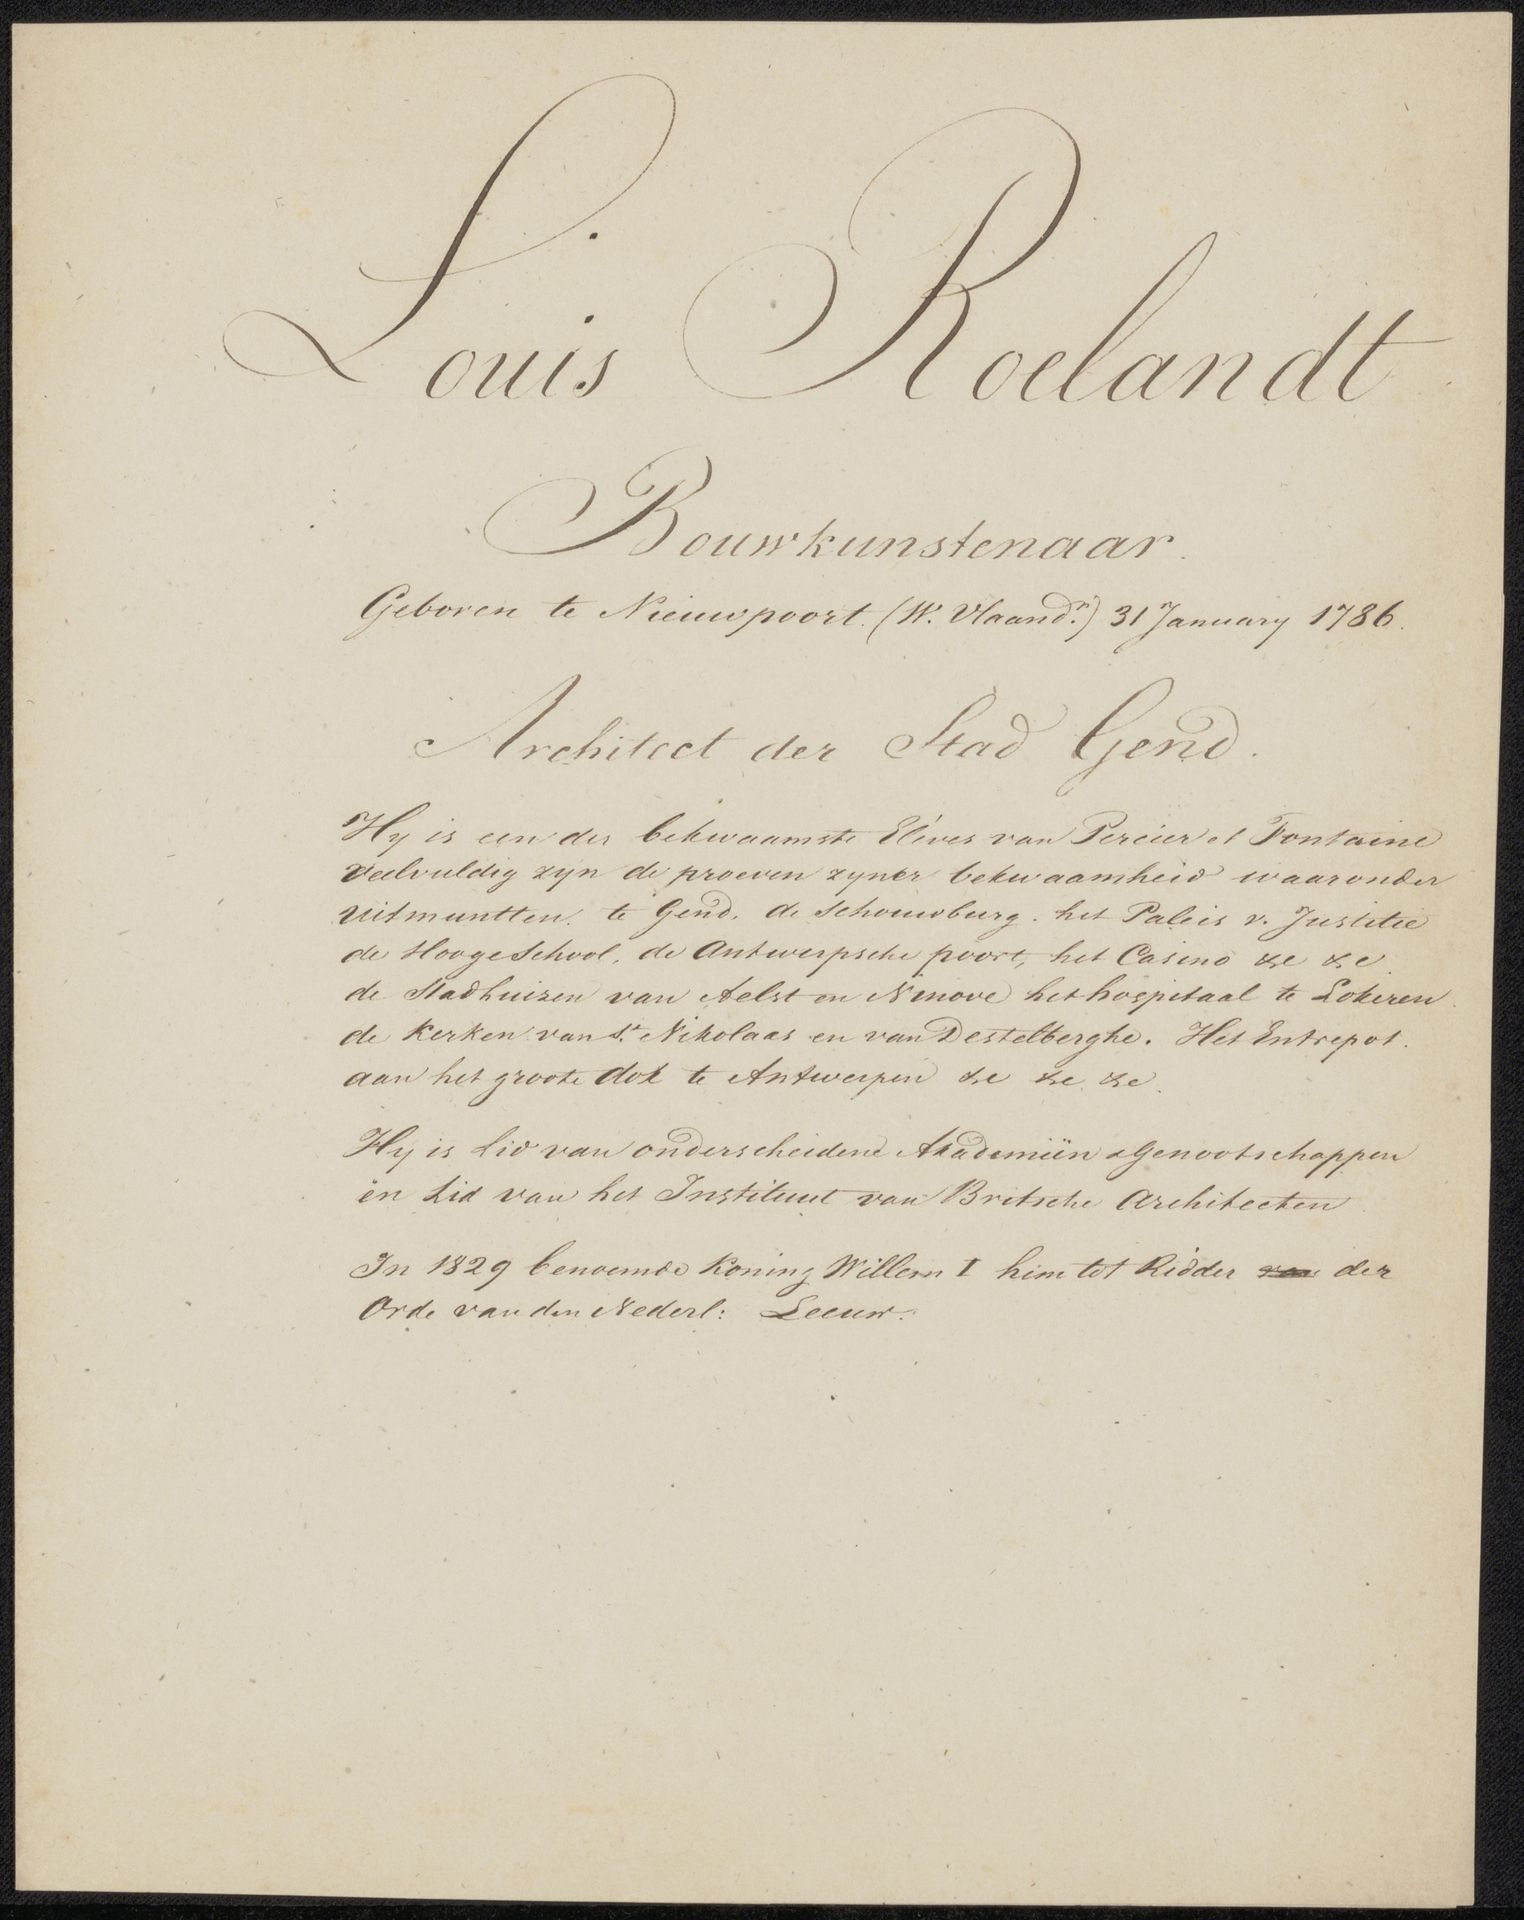 Louis Roelandt
Bouwkunstenaar.
Geboren te Nieuwpoort. (W. Vlaandn.) 31 January 1786.
Architect der Stad Gend.
Hy is een der bekwaamste Elèves van Percier et Fontaine
veelvuldig zyn de proeven zyner bekwaamheid waaronder
uitmuntten. te Gend. de Schouwburg. het Paleis v. Justitie
de Hooge School, de Antwerpsche poort, het Casino &c &c.
de Stadhuizen van Aelst en Ninove het hospitaal te Lokeren.
de Kerken van St. Nikolaas en van Destelberghe. Het Entrepot.
aan het groote dok te Antwerpen &c &c. &c.
Hy is Lid van onderscheidene Akademiën & Genootschappen
en Lid van het Instituut van Britsche Architecten.
In 1829 benoemde Koning Willem I hem tot Ridder van der
Orde van den Nederl: Leeuw.